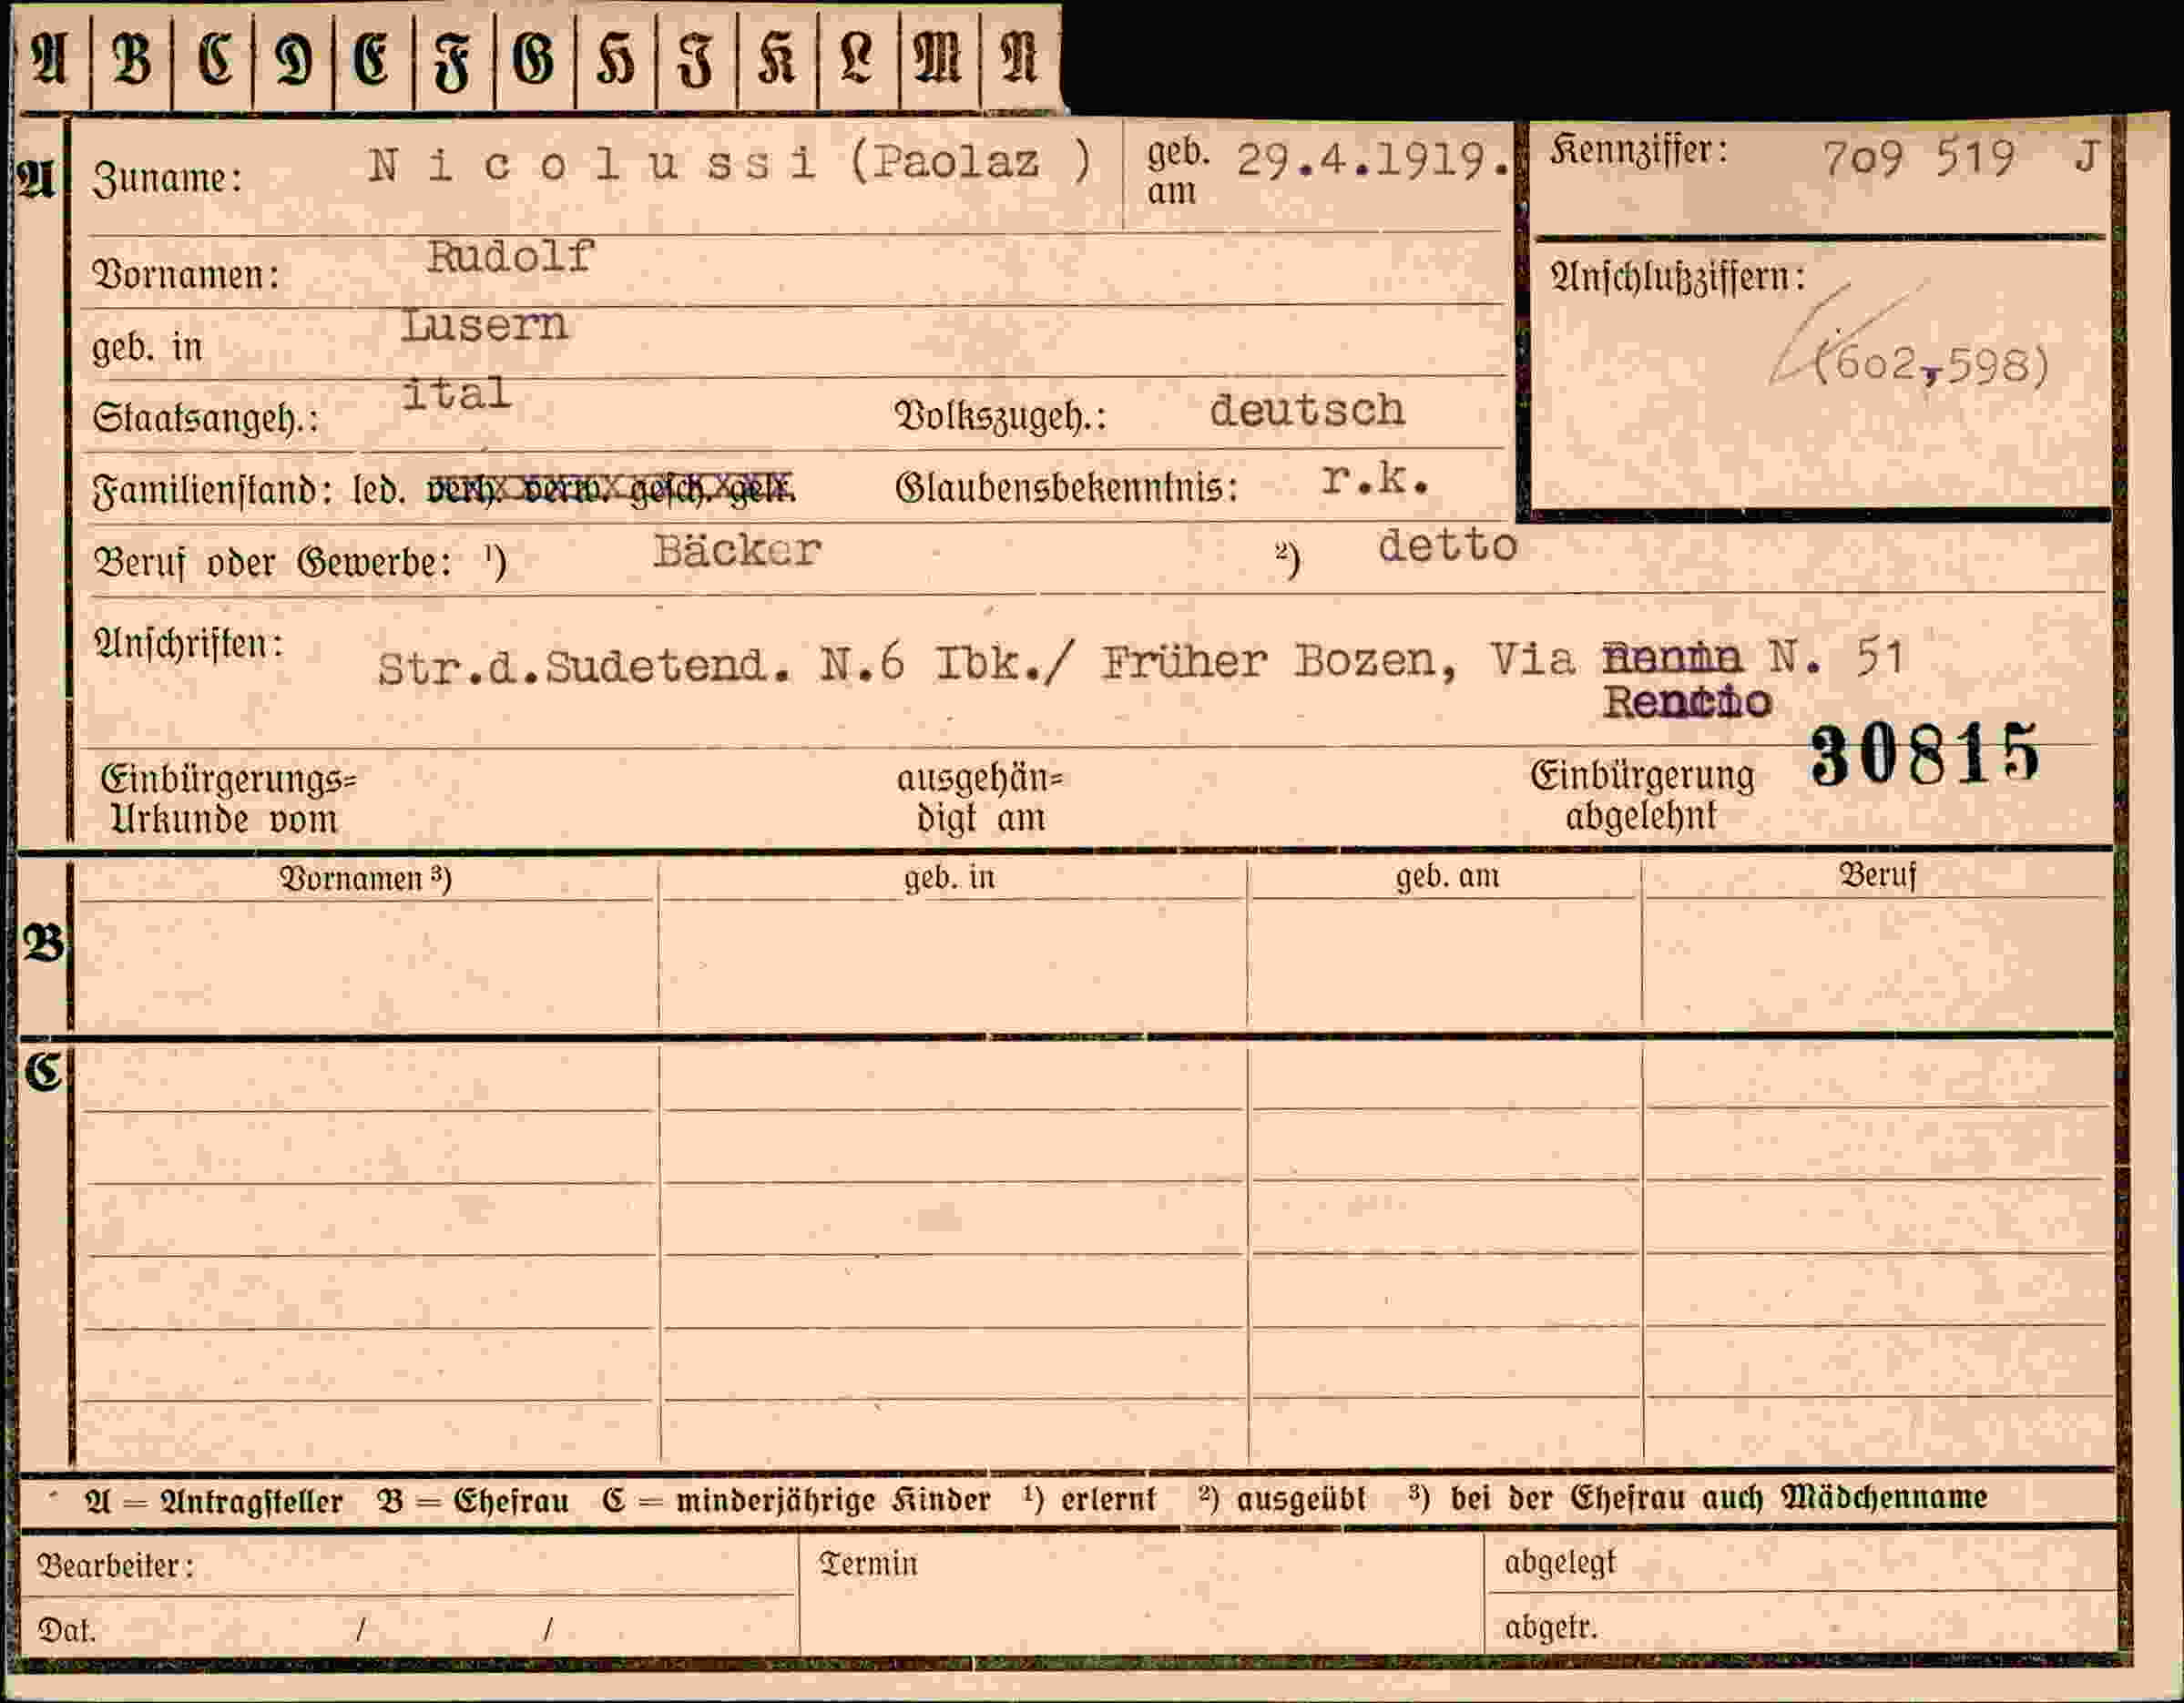 A B C D E F G H I K L M N
A Zuname: Nicolussi (Paolaz ) geb. am 29.4.1919. Kennziffer: 709 519 J
Vornamen: Rudolf
Anschlußziffern:
geb. in Lusern
(602,598)
Staatsangeh.: ital Volkszugeh.: deutsch
Familienstand: led. verh. verw. gesch. getr. Glaubensbekenntnis: r.k.
Beruf oder Gewerbe: ¹) Bäcker ²) detto
Anschriften: Str.d.Sudetend. N.6 Ibk./ Früher Bozen, Via N. 51
Rencio
30815
Einbürgerungs= ausgehän= Einbürgerung
Urkunde vom digt am abgelehnt
Vornamen ³) geb. in geb. am Beruf
B
C
A = Antragsteller B = Ehefrau C = minderjährige Kinder ¹) erlernt ²) ausgeübt ³) bei der Ehefrau auch Mädchenname
Bearbeiter: Termin abgelegt
Dat. / / abgetr.